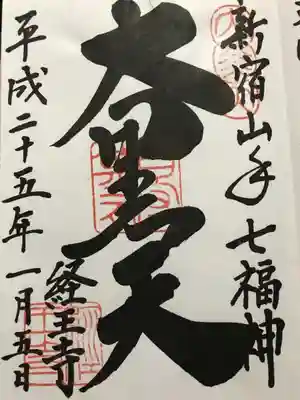 新宿山手七福神
大黒天
経王寺
平成二十五年一月五日